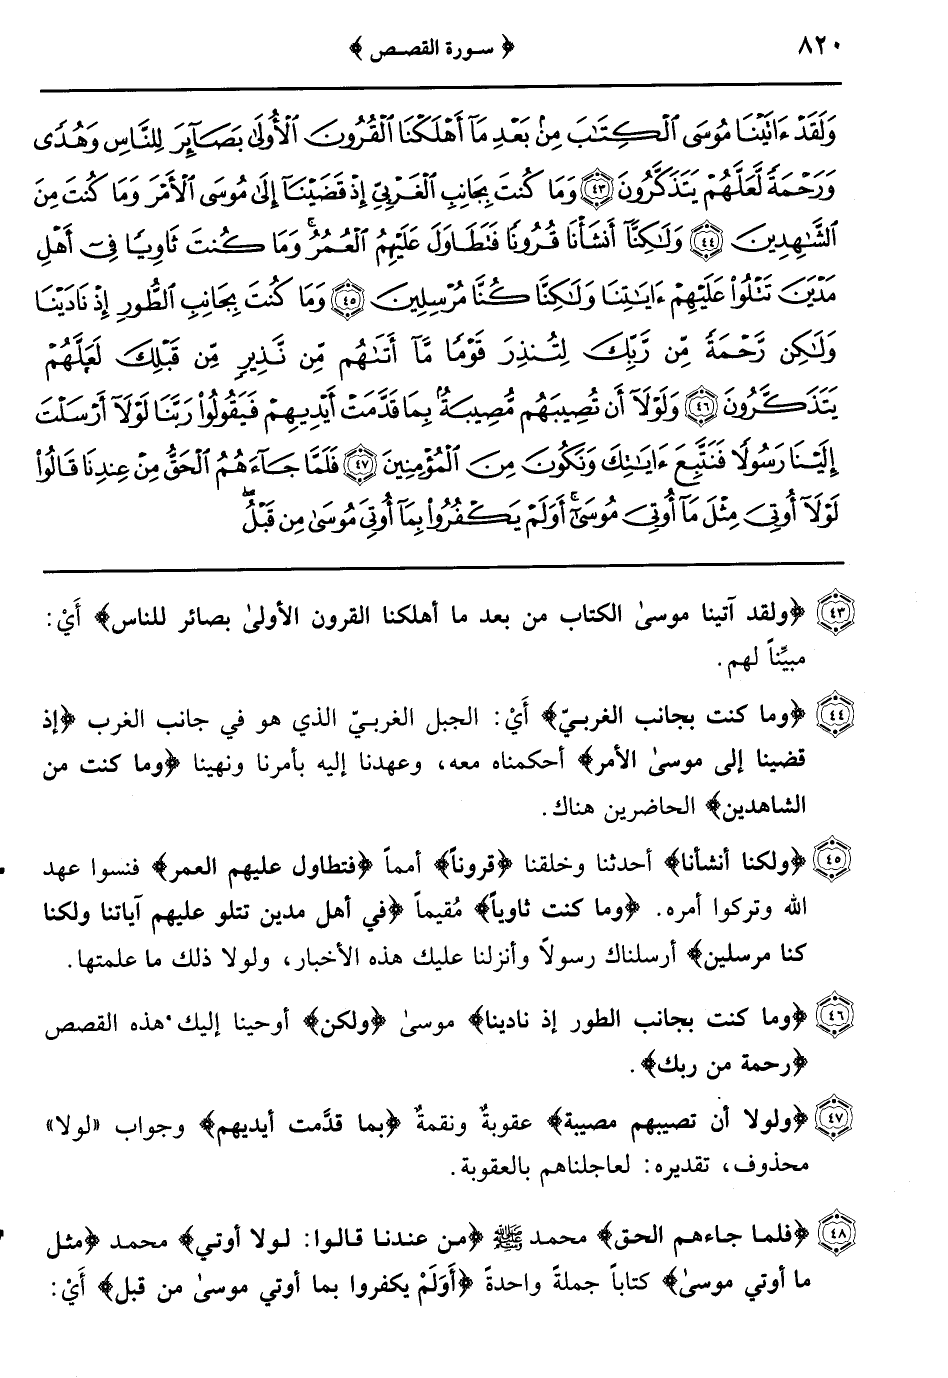 ٨٢٠ ﴿ سورة القصص ﴾
وَلَقَدْ ءَاتَيْنَا مُوسَى ٱلْكِتَٰبَ مِنۢ بَعْدِ مَآ أَهْلَكْنَا ٱلْقُرُونَ ٱلْأُولَىٰ بَصَآئِرَ لِلنَّاسِ وَهُدًى
وَرَحْمَةً لَّعَلَّهُمْ يَتَذَكَّرُونَ ٤٣ وَمَا كُنتَ بِجَانِبِ ٱلْغَرْبِيِّ إِذْ قَضَيْنَآ إِلَىٰ مُوسَى ٱلْأَمْرَ وَمَا كُنتَ مِنَ
ٱلشَّٰهِدِينَ ٤٤ وَلَٰكِنَّآ أَنشَأْنَا قُرُونًا فَتَطَاوَلَ عَلَيْهِمُ ٱلْعُمُرُ ۚ وَمَا كُنتَ ثَاوِيًا فِىٓ أَهْلِ
مَدْيَنَ تَتْلُوا۟ عَلَيْهِمْ ءَايَٰتِنَا وَلَٰكِنَّا كُنَّا مُرْسِلِينَ ٤٥ وَمَا كُنتَ بِجَانِبِ ٱلطُّورِ إِذْ نَادَيْنَا
وَلَٰكِن رَّحْمَةً مِّن رَّبِّكَ لِتُنذِرَ قَوْمًا مَّآ أَتَىٰهُم مِّن نَّذِيرٍ مِّن قَبْلِكَ لَعَلَّهُمْ
يَتَذَكَّرُونَ ٤٦ وَلَوْلَآ أَن تُصِيبَهُم مُّصِيبَةٌۢ بِمَا قَدَّمَتْ أَيْدِيهِمْ فَيَقُولُوا۟ رَبَّنَا لَوْلَآ أَرْسَلْتَ
إِلَيْنَا رَسُولًا فَنَتَّبِعَ ءَايَٰتِكَ وَنَكُونَ مِنَ ٱلْمُؤْمِنِينَ ٤٧ فَلَمَّا جَآءَهُمُ ٱلْحَقُّ مِنْ عِندِنَا قَالُوا۟
لَوْلَآ أُوتِىَ مِثْلَ مَآ أُوتِىَ مُوسَىٰٓ ۚ أَوَلَمْ يَكْفُرُوا۟ بِمَآ أُوتِىَ مُوسَىٰ مِن قَبْلُ ۖ
٤٣ ﴿ولقد آتينا موسىٰ الكتاب من بعد ما أهلكنا القرون الأولىٰ بصائر للناس﴾ أَيْ:
مبيِّناً لهم.
٤٤ ﴿وما كنت بجانب الغربيّ﴾ أَيْ: الجبل الغربيّ الذي هو في جانب الغرب ﴿إذ
قضينا إلى موسىٰ الأمر﴾ أحكمناه معه، وعهدنا إليه بأمرنا ونهينا ﴿وما كنت من
الشاهدين﴾ الحاضرين هناك.
٤٥ ﴿ولكنا أنشأنا﴾ أحدثنا وخلقنا ﴿قروناً﴾ أمماً ﴿فتطاول عليهم العمر﴾ فنسوا عهد
الله وتركوا أمره. ﴿وما كنت ثاوياً﴾ مُقيماً ﴿في أهل مدين تتلو عليهم آياتنا ولكنا
كنا مرسلين﴾ أرسلناك رسولاً وأنزلنا عليك هذه الأخبار، ولولا ذلك ما علمتها.
٤٦ ﴿وما كنت بجانب الطور إذ نادينا﴾ موسىٰ ﴿ولكن﴾ أوحينا إليك هذه القصص
﴿رحمة من ربك﴾.
٤٧ ﴿ولولا أن تصيبهم مصيبة﴾ عقوبةٌ ونقمةٌ ﴿بما قدَّمت أيديهم﴾ وجواب «لولا»
محذوف، تقديره: لعاجلناهم بالعقوبة.
٤٨ ﴿فلما جاءهم الحق﴾ محمد ﷺ ﴿من عندنا قالوا: لولا أوتي﴾ محمد ﴿مثل
ما أوتي موسىٰ﴾ كتاباً جملةً واحدةً ﴿أَوَلَمْ يكفروا بما أوتي موسىٰ من قبل﴾ أَيْ: